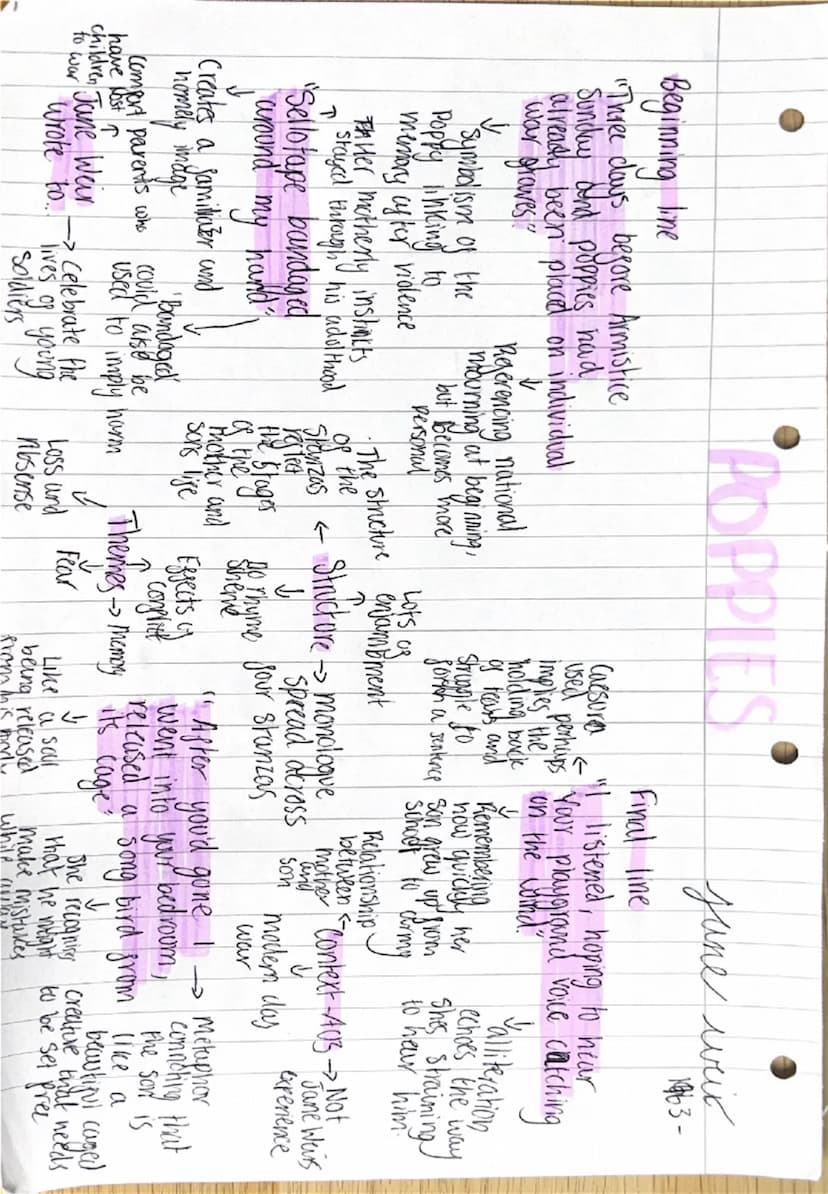 POPPIES
June weir
1963-
Beginning line
"Three days before Armistice
Sunday and poppies had
already been placed on individual
war graves"
↓
Symbolism of the
Poppy linking to
memory after violence
↓
Referencing national
mourning at beginning,
but becomes more
personal
Her motherly instincts
stayed through his adulthood
↑
"Sellotape bandaged
around my hand"
↓
Creates a familiar and
homely image
↓
'Bandaged'
could also be
used to imply harm
comfort parents who
have lost
children
to war
↑
June Weir
wrote to..
→ Celebrate the
lives of young
soldiers
Final line
"I listened, hoping to hear
your playground voice catching
on the wind"
←
Caesura
used perhaps
implies the
holding back
of tears and
struggle to
form a sentence
↓
Remembering
how quickly her
son grew up from
school to army
↓
alliteration
echoes the way
shes straining
to hear him.
Structure
←
The structure
of the
stanzas
reflect
the stages
of the
mother and
sons life
↑
Lots of
enjambment
↓
no rhyme
scheme
→ monologue
spread across
four stanzas
Context - AO3
←
Relationship
between
mother
and
son
↓
modern day
war
→ Not
Jane Weirs
experience
Themes
↓
Loss and
absense
↑
Effects of
conflict
↓
Fear
→ memory
"After you'd gone I
went into your bedroom,
released a song bird from
its cage"
→ Metaphor
connoting that
the son is
like a
beautiful caged
creature that needs
to be set free
↓
Like a son
being released
from his
↓
She recognises
that he might
make mistakes
while